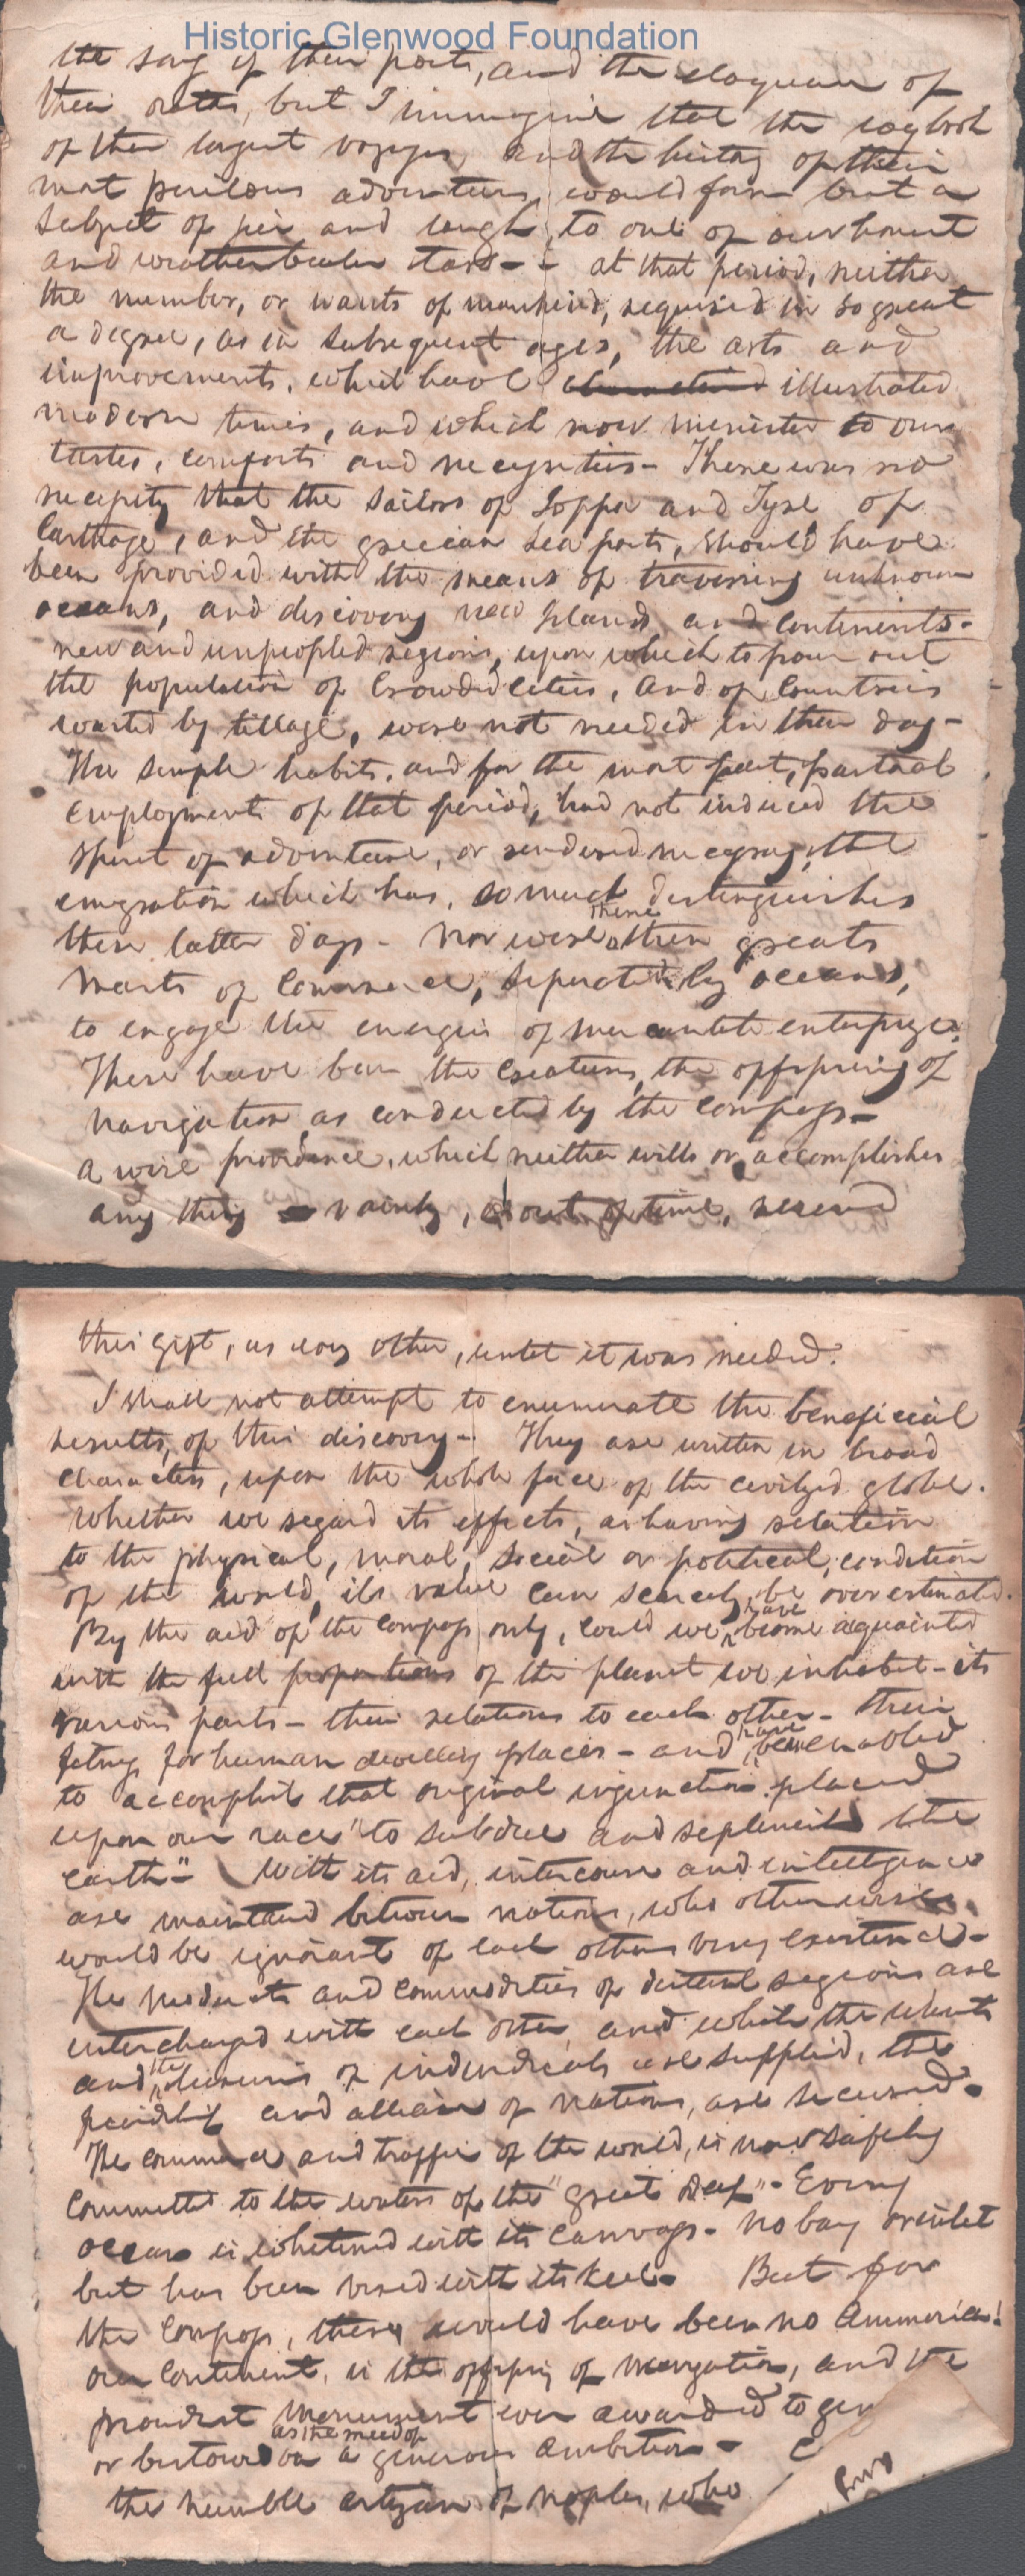 Historic Glenwood Foundation
the song of their poets, and the eloquence of
their orators, but I immagine that the logbook
of their longest voyages, and the history of their
most perilous adventures, would form but a
subject of jeer and laugh, to one of our honest
and weatherbeaten tars - - at that period, neither
the number, or wants of mankind, required in so great
a degree, as in subsequent ages, the arts and
improvements, which have illustrated
modern times, and which now minister to our
tastes, comforts and necessities - There was no
necessity that the sailors of Joppa and Tyre of
Carthage, and the grecian sea ports, should have
been provided with the means of traversing unknown
oceans, and discovering new Islands and Continents -
new and unpeopled regions, upon which to pour out
the population of Crowded Cities, and of Countries
wasted by tillage, were not needed in their day -
The simple habits, and for the most part, pastoral
employments of that period, had not induced the
spirit of adventure, or rendered necessary, the
emigration which has, so much distinguishes
these latter days - Nor were there then great
marts of Commerce, seperated by oceans,
to engage the energies of mercantile enterprize.
These have been the Creatures, the offspring of
navigation as conducted by the Compass -
a wise providence, which neither wills or accomplishes
any thing vainly, or out of time, reserved
this gift, as every other, until it was needed.
I shall not attempt to enumerate the beneficial
results, of this discovery - They are written in broad
characters, upon the whole face of the civilized globe.
Whether we regard its effects, as having relation
to the physical, moral, social or political, condition
of the world, its value can scarcely be overestimated.
By the aid of the Compass only, could we have become acquainted
with the full proportions of the planet we inhabit - its
various parts - their relations to each other - their
fitness for human dwelling places - and have been enabled
to accomplish that original injunction placed
upon our race "to subdue and replenish the
earth" - With its aid, intercourse and intelligence
are maintained between nations, who otherwise
would be ignorant of each others very existence -
The products and commodities of distant regions are
interchanged with each other, and while the wants
and the of individuals are supplied, the
friendship and alliance of nations, are secured.
The commerce and traffic of the world, is now safely
committed to the waters of the "great deep" - Every
ocean is whitened with its canvass - No bay or inlet
but has been with its keel - But for
the Compass, there would have been no Ammerica!
Our Continent, is the offspring of navigation, and the
proudest monument ever awarded to gen
or bestowed as the meed of a generous ambition -
the humble artizan of Naples, who